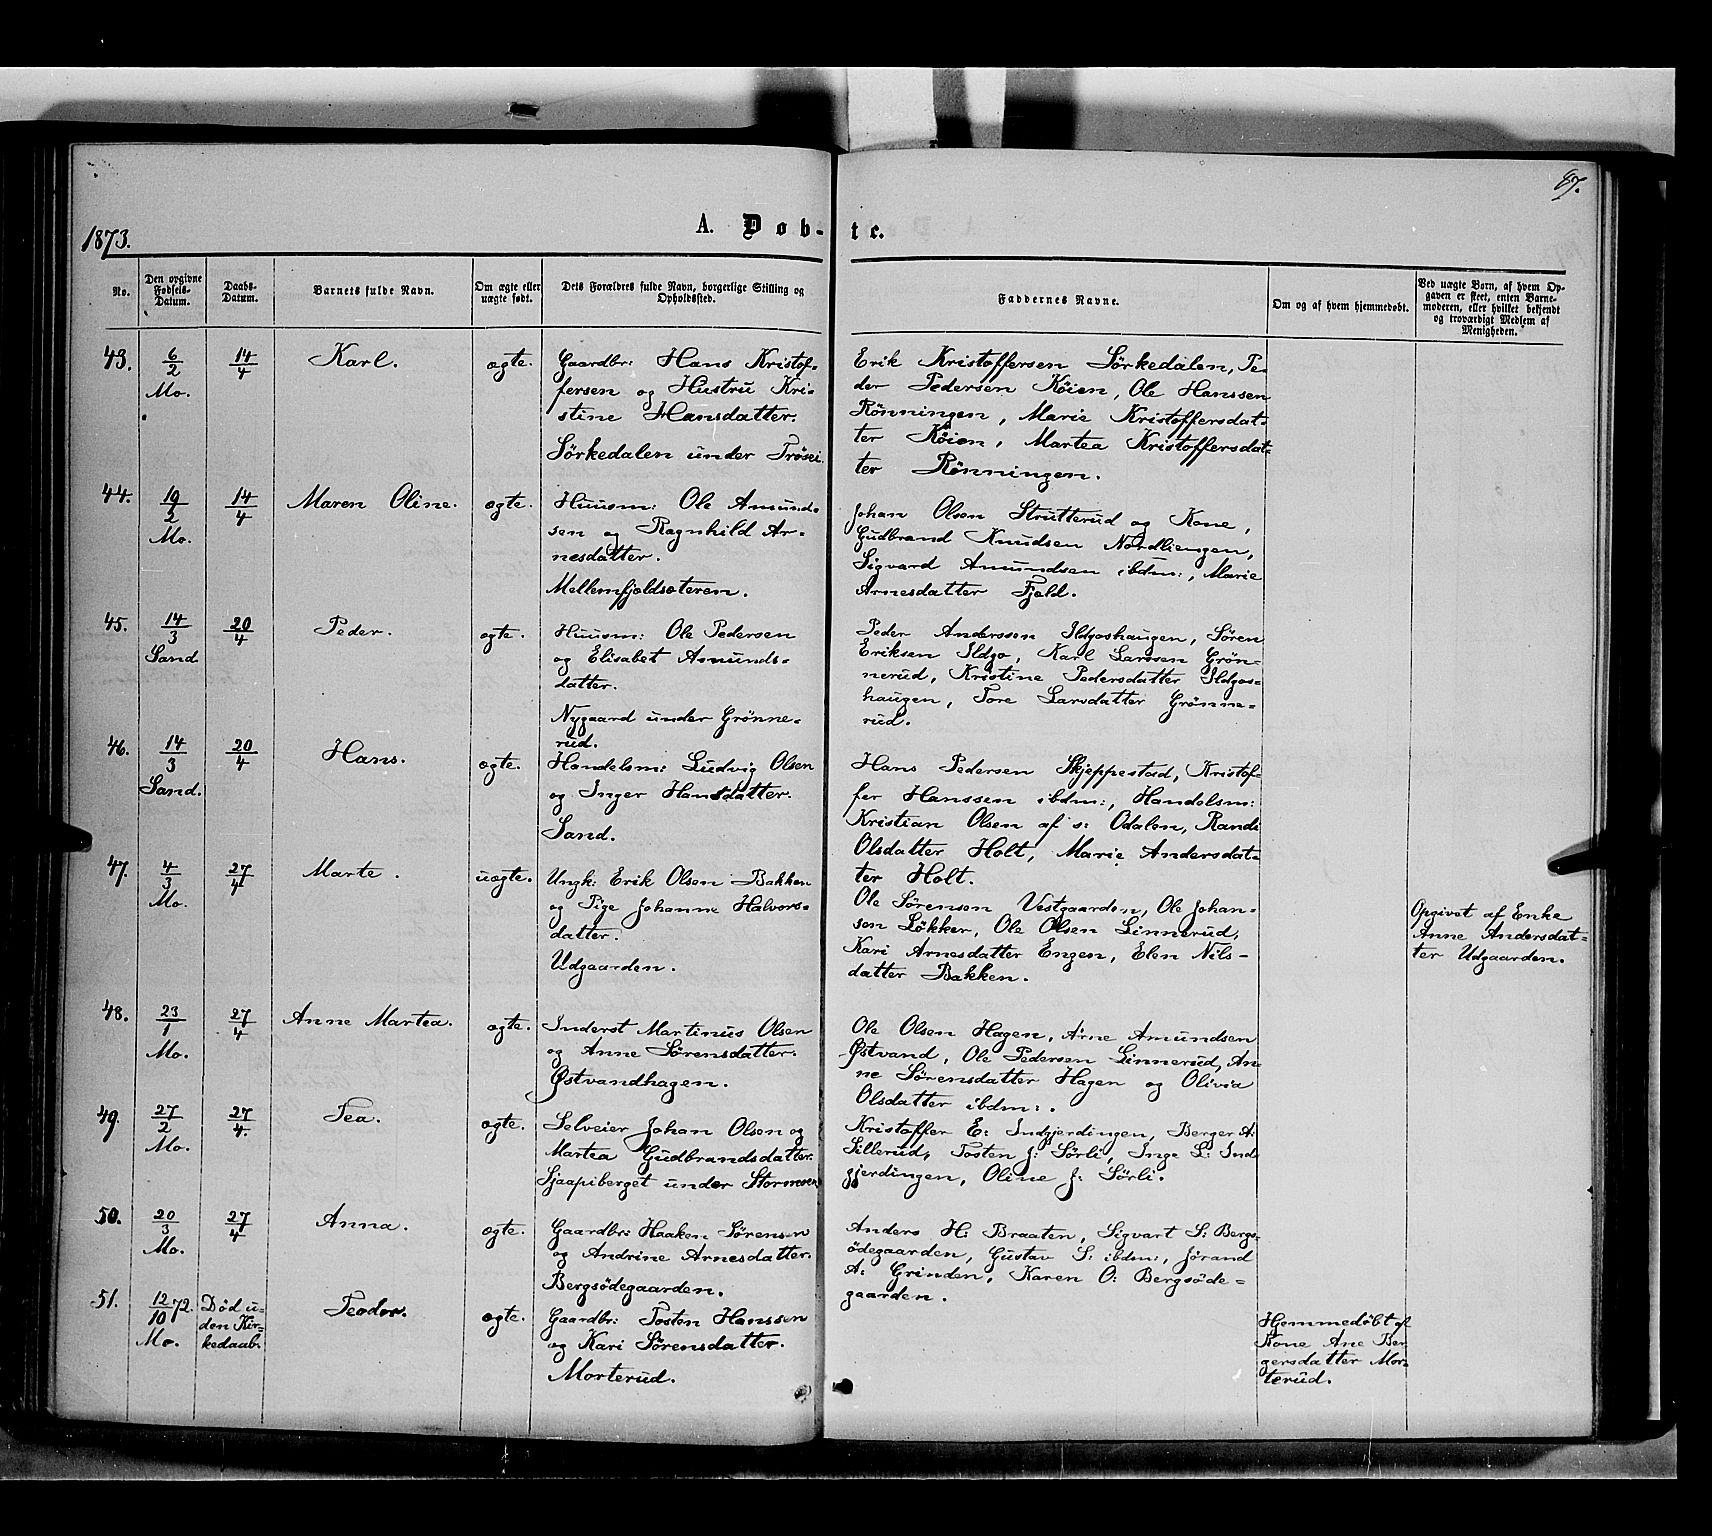 87.
1873.
A. Døb-te.
No.
Den opgivne Fødsels-Datum.
Daabs-Datum.
Barnets fulde Navn.
Om ægte eller uægte født.
Dets Forældres fulde Navn, borgerlige Stilling og Opholdssted.
Faddernes Navne.
Om og af hvem hjemmedøbt.
Ved uægte Børn, af hvem Op-
gaven er skeet, enten Barne-
moderen, eller hvilket bekjendt
og troværdigt Medlem af
Menigheden.
43.
6/2
Mo.
14/4
Karl.
ægte.
Gaardbr: Hans Kristof-
fersen og Hustru Kri-
stine Hansdatter.
Sörkedalen under Tröset.
Erik Kristoffersen Sörkedalen, Pe-
der Pedersen Köien, Ole Hanssen
Rönningen, Marie Kristoffersdat-
ter Köien, Martea Kristoffersdat-
ter Rönningen.
44.
19/2
Mo.
14/4
Maren Oline.
ægte.
Huusm: Ole Amund-
sen og Ragnhild Ar-
nesdatter.
Mellemfjeldsæteren.
Johan Olsen Strutterud og Kone,
Gudbrand Knudsen Nordliengen,
Sigvard Amundsen ibdm:, Marie
Arnesdatter Fjeld.
45.
14/3
Sand
20/4
Peder.
ægte.
Huusm: Ole Pedersen
og Elisabet Amunds-
datter.
Nygaard under Grönne-
rud.
Peder Anderssen Ildgoshaugen, Sören
Eriksen Ildgo, Karl Larssen Grön-
nerud, Kristine Pedersdatter Ildgos-
haugen, Tore Larsdatter Grönne-
rud.
46.
14/3
Sand.
20/4
Hans.
ægte.
Handelsm: Ludvig Olsen
og Inger Hansdatter.
Sand.
Hans Pedersen Skjeppestad, Kristof-
fer Hanssen ibdm:, Handelsm:
Kristian Olsen af s: Odalen, Randi
Olsdatter Holt, Marie Andersdat-
ter Holt.
47.
4/3
Mo.
27/4
Marte.
uægte.
Ungk: Erik Olsen Bakken
og Pige Johanne Halvors-
datter.
Udgaarden.
Ole Sörensen Vestgaarden, Ole Johan-
sen Lökker, Ole Olsen Linnerud,
Kari Arnesdatter Engen, Elen Nils-
datter Bakken.
Opgivet af Enke
Anne Andersdat-
ter Udgaarden.
48.
23/1
Mo.
27/4
Anne Martea.
ægte.
Inderst Martinus Olsen
og Anne Sörensdatter.
Østvandhagen.
Ole Olsen Hagen, Arne Amundsen
Østvand, Ole Pedersen Linnerud, An-
ne Sörensdatter Hagen og Olivia
Olsdatter ibdm:.
49.
27/2
Mo.
27/4.
Tea.
ægte.
Selveier Johan Olsen og
Martea Gudbrandsdatter.
Sjaapiberget under Stormoen
Kristoffer E: Indgjerdingen, Berger A:
Sillerud, Tosten J: Sörli, Inge L: Ind-
gjerdingen, Oline J: Sörli.
50.
20/3
Mo.
27/4
Anna.
ægte.
Gaardbr: Haaken Sörensen
og Andrine Arnesdatter.
Bergsödegaarden.
Anders H: Braaten, Sigvart S: Bergs-
ödegaarden, Gustav S: ibdm:, Jörand
A: Grinden, Karen O: Bergsöde-
gaarden.
51.
12/10 72.
Mo.
Död u-
den Kir-
kedaab.
Teodor.
ægte.
Gaardbr: Tosten Hanssen
og Kari Sörensdatter.
Morterud.
Hjemmedöbt af
Kone Ane Ber-
gersdatter Mor-
terud.